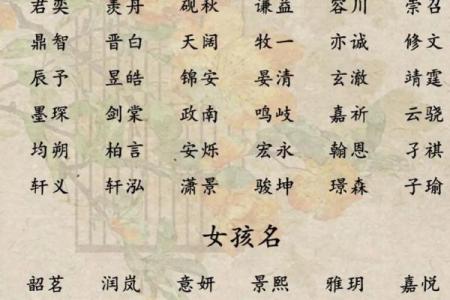 君奕 羡舟 砚秋 谦益 容川 崇召
鼎智 晋白 天阔 牧一 亦诚 修文
辰予 昱皓 锦安 晏清 玄澈 靖霆
墨琛 剑棠 政南 鸣岐 嘉祈 云骁
均朔 柏言 安烁 宏永 翰恩 子祺
轩义 轩泓 潇景 骏坤 璟森 子瑜
女孩名
韶茗 润岚 意妍 景熙 雅玥 嘉悦